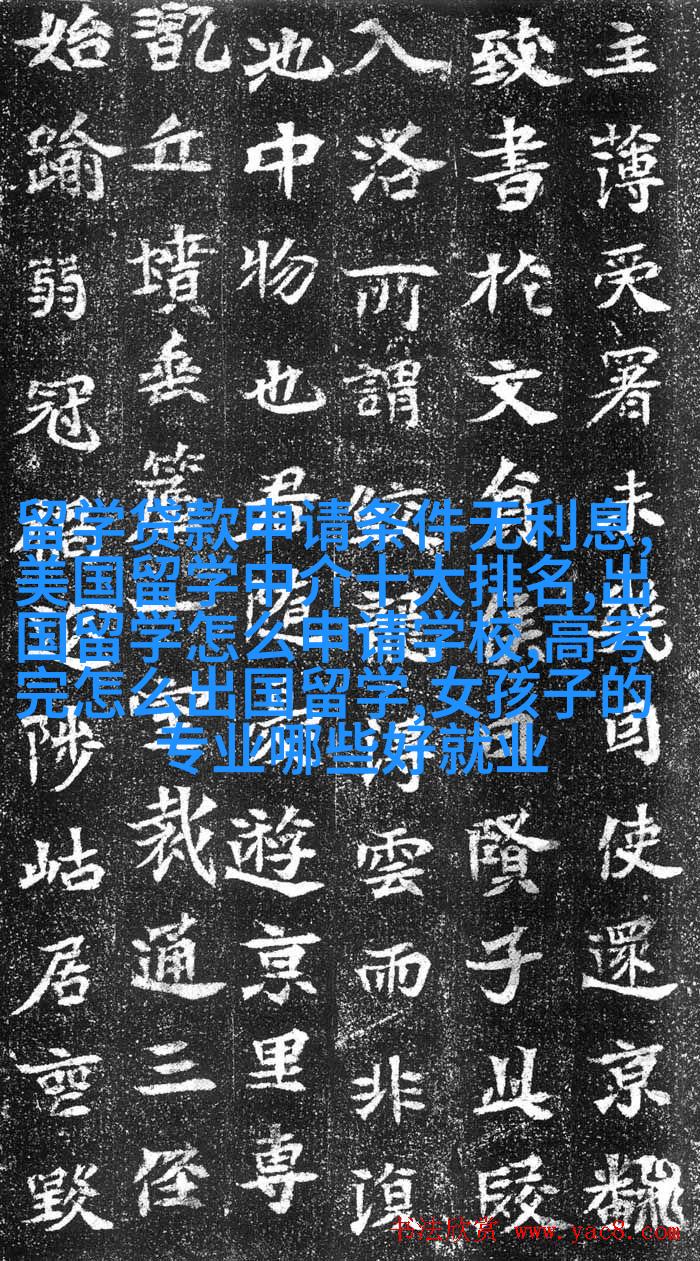 主薄受署未幾使還京
致書於文侯曰賢子此段
入洛所謂蛟龍得雲雨非復
池中物也君隨遊京里専
翫丘墳垂一室裁通三徑
始踰弱冠陟岵居喪毀
留学贷款申请条件无利息,
美国留学中介十大排名,出
国留学怎么申请学校,高考
完怎么出国留学,女孩子的
专业哪些好就业
书法欣赏 www.yac8.com